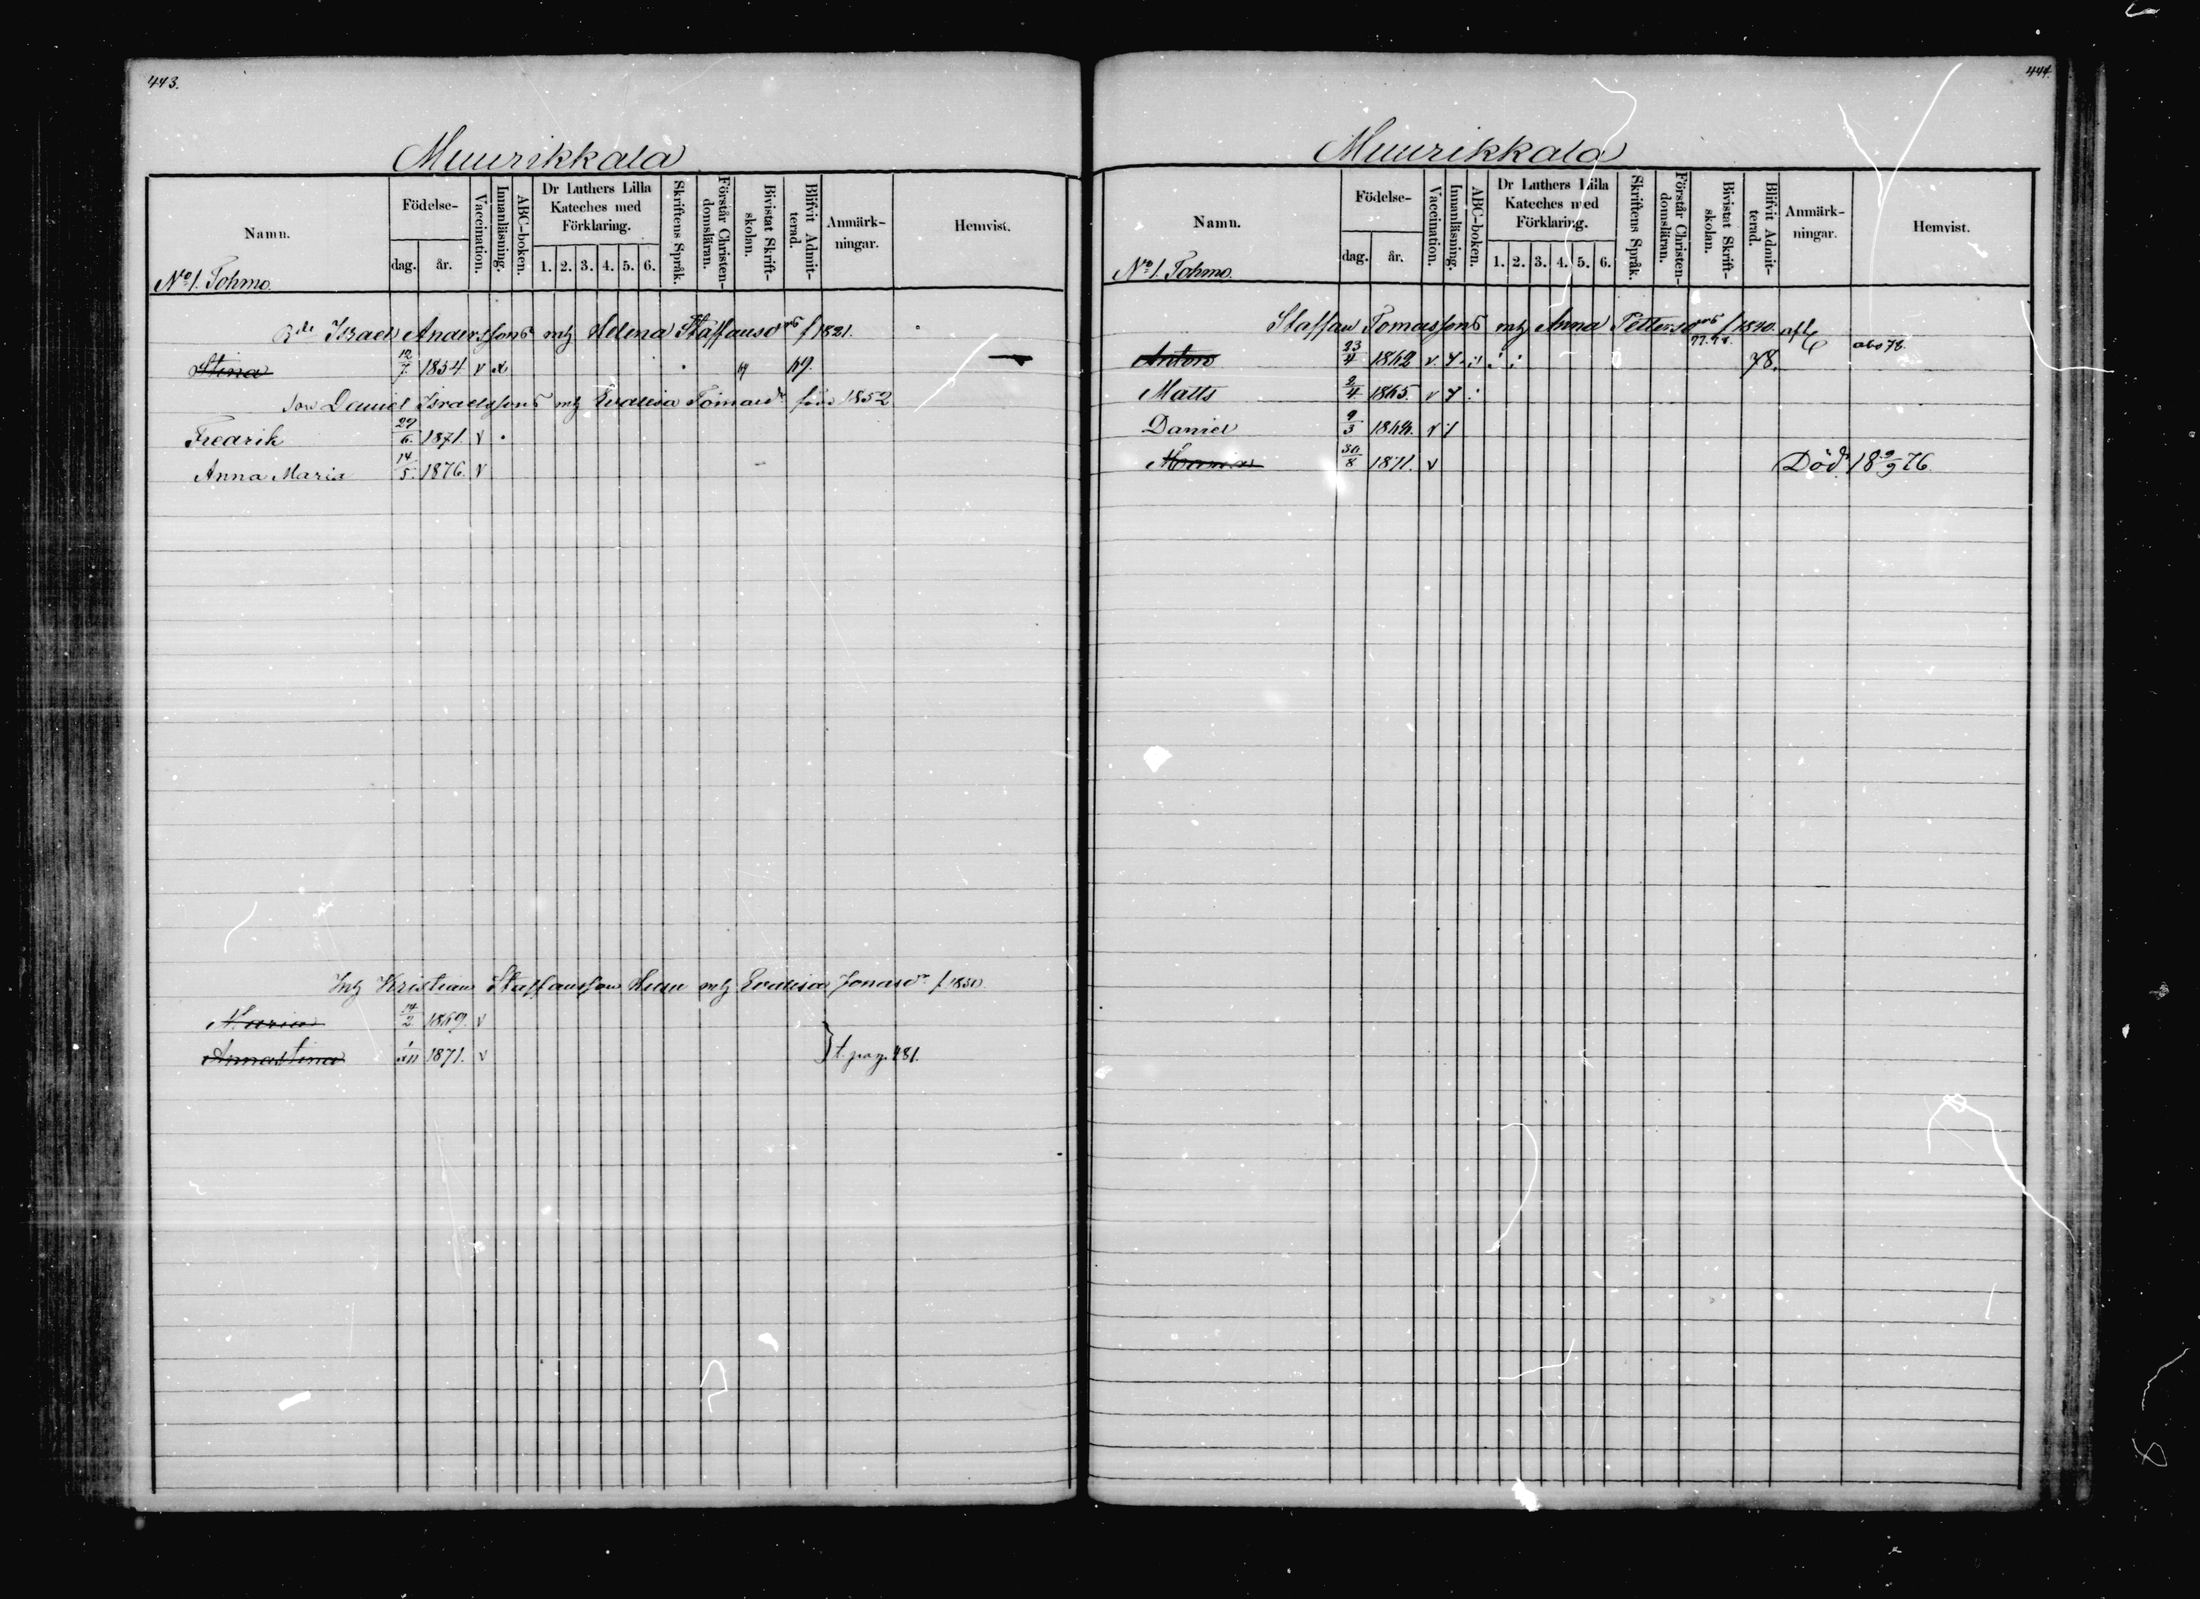 443.
Muurikkala
Namn.
Födelse-
dag.
år.
Vaccination.
Innanläsning.
ABC-boken.
Dr Luthers Lilla
Kateches med
Förklaring.
1. 2. 3. 4. 5. 6.
Skriftens Språk.
Förstår Christen-
domsläran.
Bivistat Skrift-
skolan.
Blifvit Admit-
terad.
Anmärk-
ningar.
Hemvist.
No 1. Tohmo.
Israel Anderssons mh Helena Staffansdrs f 1821.
Stina 12/7 1854 v x 69.
son Daniel Israelssons mh Evalisa Tomasdr 1852
Fredrik 29/6. 1871. v
Anna Maria 14/5. 1876. v
Inh Kristian Staffansson mh Evalisa Jonasdr f 1850.
Maria 14/2 1869. v
Annastina 1871. v } t. pag. 481.
444.
Muurikkala
Namn.
Födelse-
dag.
år.
Vaccination.
Innanläsning.
ABC-boken.
Dr Luthers Lilla
Kateches med
Förklaring.
1. 2. 3. 4. 5. 6.
Skriftens Språk.
Förstår Christen-
domsläran.
Bivistat Skrift-
skolan.
Blifvit Admit-
terad.
Anmärk-
ningar.
Hemvist.
No 1. Tohmo.
Staffan Tomassons mh Anna Pettersdrs f 1840.
Anton 23/4 1862 v. 78.
Matts 2/4 1865. v
Daniel 9/3 v
Maria 30/8 1871. v Död 18 9/9 76.